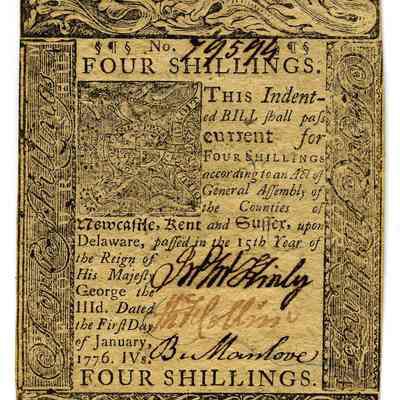 §¶§ No. 79594 ¶§
FOUR SHILLINGS.
THIS Indent-
ed BILL shall pass
current for
FOUR SHILLINGS
according to an Act of
General Assembly of
the Counties of
Newcastle, Kent and Sussex, upon
Delaware, passed in the 15th Year of
the Reign of
His Majesty
George the
IIId. Dated
the First Day
of January,
1776. IVs.
Jno McKinly
Bu Manlove
FOUR SHILLINGS.
Four Shillings